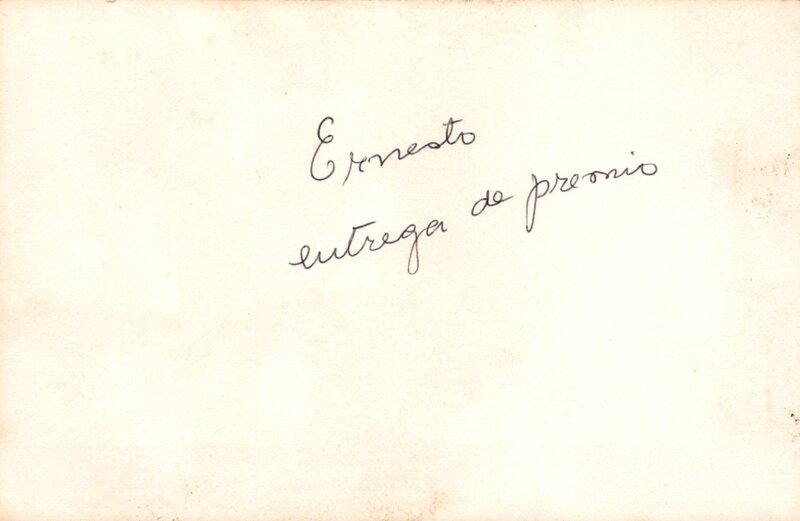 Ernesto
entrega de premio